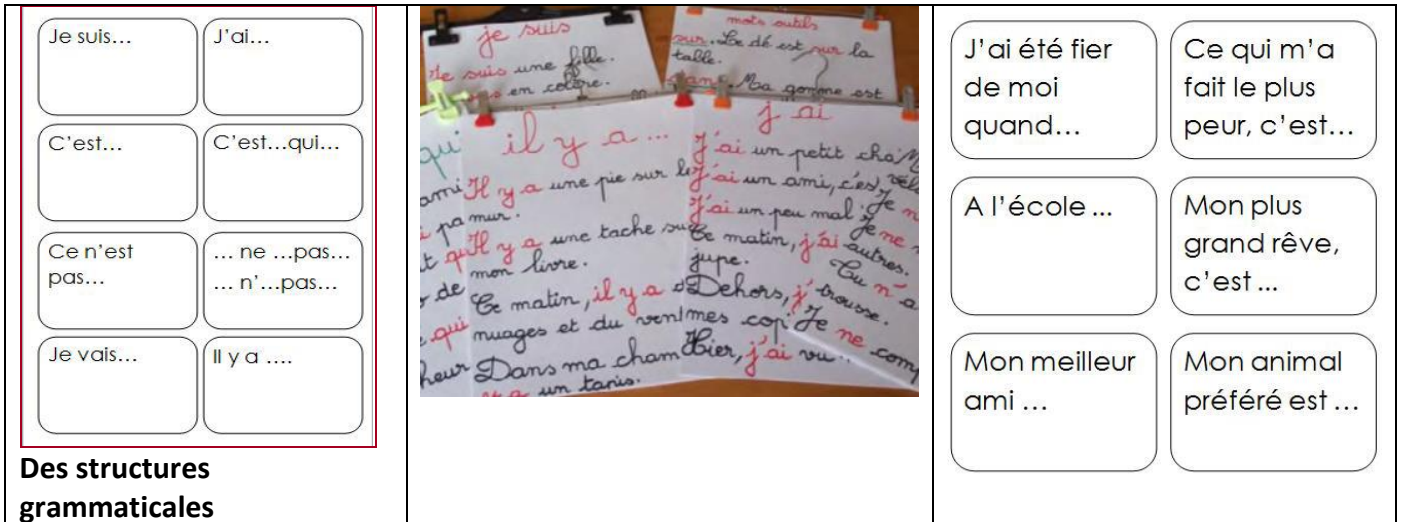 Je suis…
J'ai…
C'est…
C'est…qui…
Ce n'est
pas…
… ne …pas…
… n'…pas…
Je vais…
Il y a ….
Des structures
grammaticales
je suis
Je suis une fille.
en colère.
mots outils
sur. Le dé est sur la
table.
Ma gomme est
qui
il y a ...
Il y a une pie sur le
mur.
Il y a une tache su
mon livre.
Ce matin, il y a d
nuages et du ven
Dans ma cham
un tapis.
j'ai
J'ai un petit cha
J'ai un ami, c'es
J'ai un peu mal
Ce matin, j'ai
jupe.
Dehors, j'
mes cop
Hier, j'ai vu
vélo
Je n
Je ne
autres.
Tu n'a
trousse.
Je ne com
J'ai été fier
de moi
quand…
Ce qui m'a
fait le plus
peur, c'est…
A l'école ...
Mon plus
grand rêve,
c'est ...
Mon meilleur
ami …
Mon animal
préféré est …